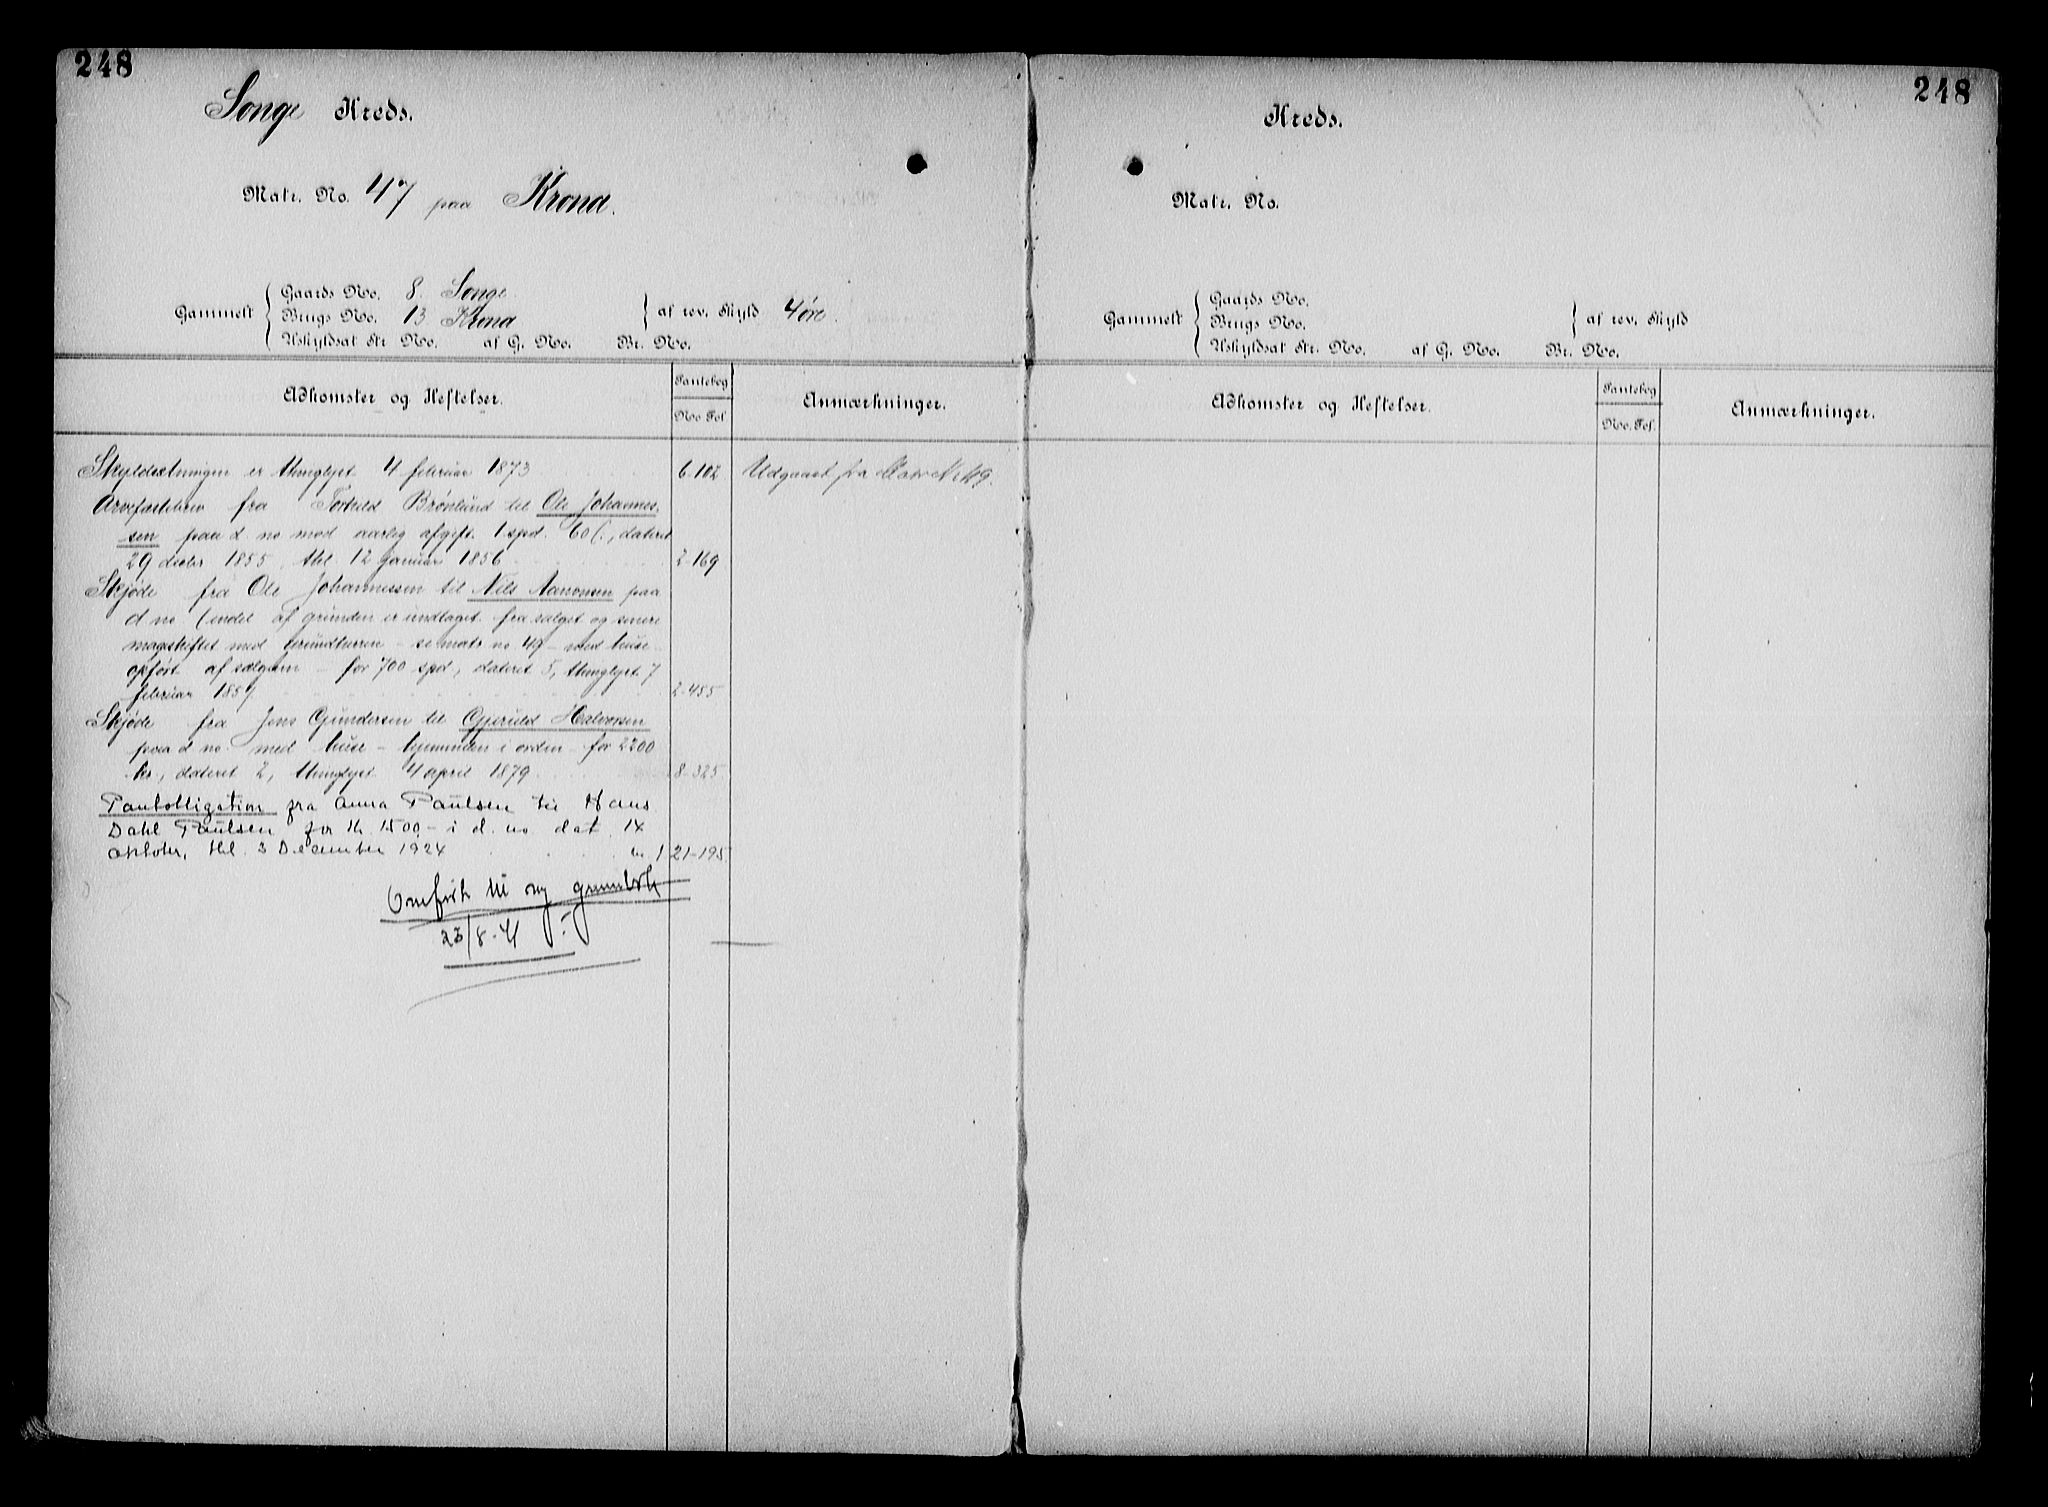 248
Songe Kreds.
Matr. No. 47 paa Krona.
Gammelt
Gaards No. 8. Songe
Brugs No. 13 Krona
Uskyldsat Str. No. af G. No. Br. No.
af rev. Skyld 4 øre.
Adkomster og Heftelser.
Pantebog
No. Fol.
Anmærkninger.
Skyldsetningen er thinglyst 4 februar 1873 6-102 Udgaaet fra Matr No 49.
Arvefæstebrev fra Brønlund til Ole Johannes-
sen paa d. no mod aarlig afgift 1 spd. 60 ß., dateret
29 decbr 1855, thl. 12 januar 1856 2-169
Skjøde fra Ole Johannessen til Nils Aanonsen paa
d. no (endel af grunden er undtaget fra salget og senere
mageskiftet med Grundherren - se matr no 49 - med huse
opført af sælgeren - for 700 spd, dateret 5, thinglyst 7
februar 1857 2-455
Skjøde fra Jens Gundersen til Gjeruld Halvorsen
paa d. no. med huse - hjemmelen i orden - for 2200
kr., dateret 2, thinglyst 4 april 1879 8-325
Pantobligation fra Anna Paulsen til Hans
Dahl Paulsen for kr. 1500,- i d. no. dat. 14
oktober, thl. 3 December 1924 21-195.
Omført til ny grunnbok
23/8-41
248
Kreds.
Matr. No.
Gammelt
Gaards No.
Brugs No.
Uskyldsat Str. No. af G. No. Br. No.
af rev. Skyld
Adkomster og Heftelser.
Pantebog
No. Fol.
Anmærkninger.